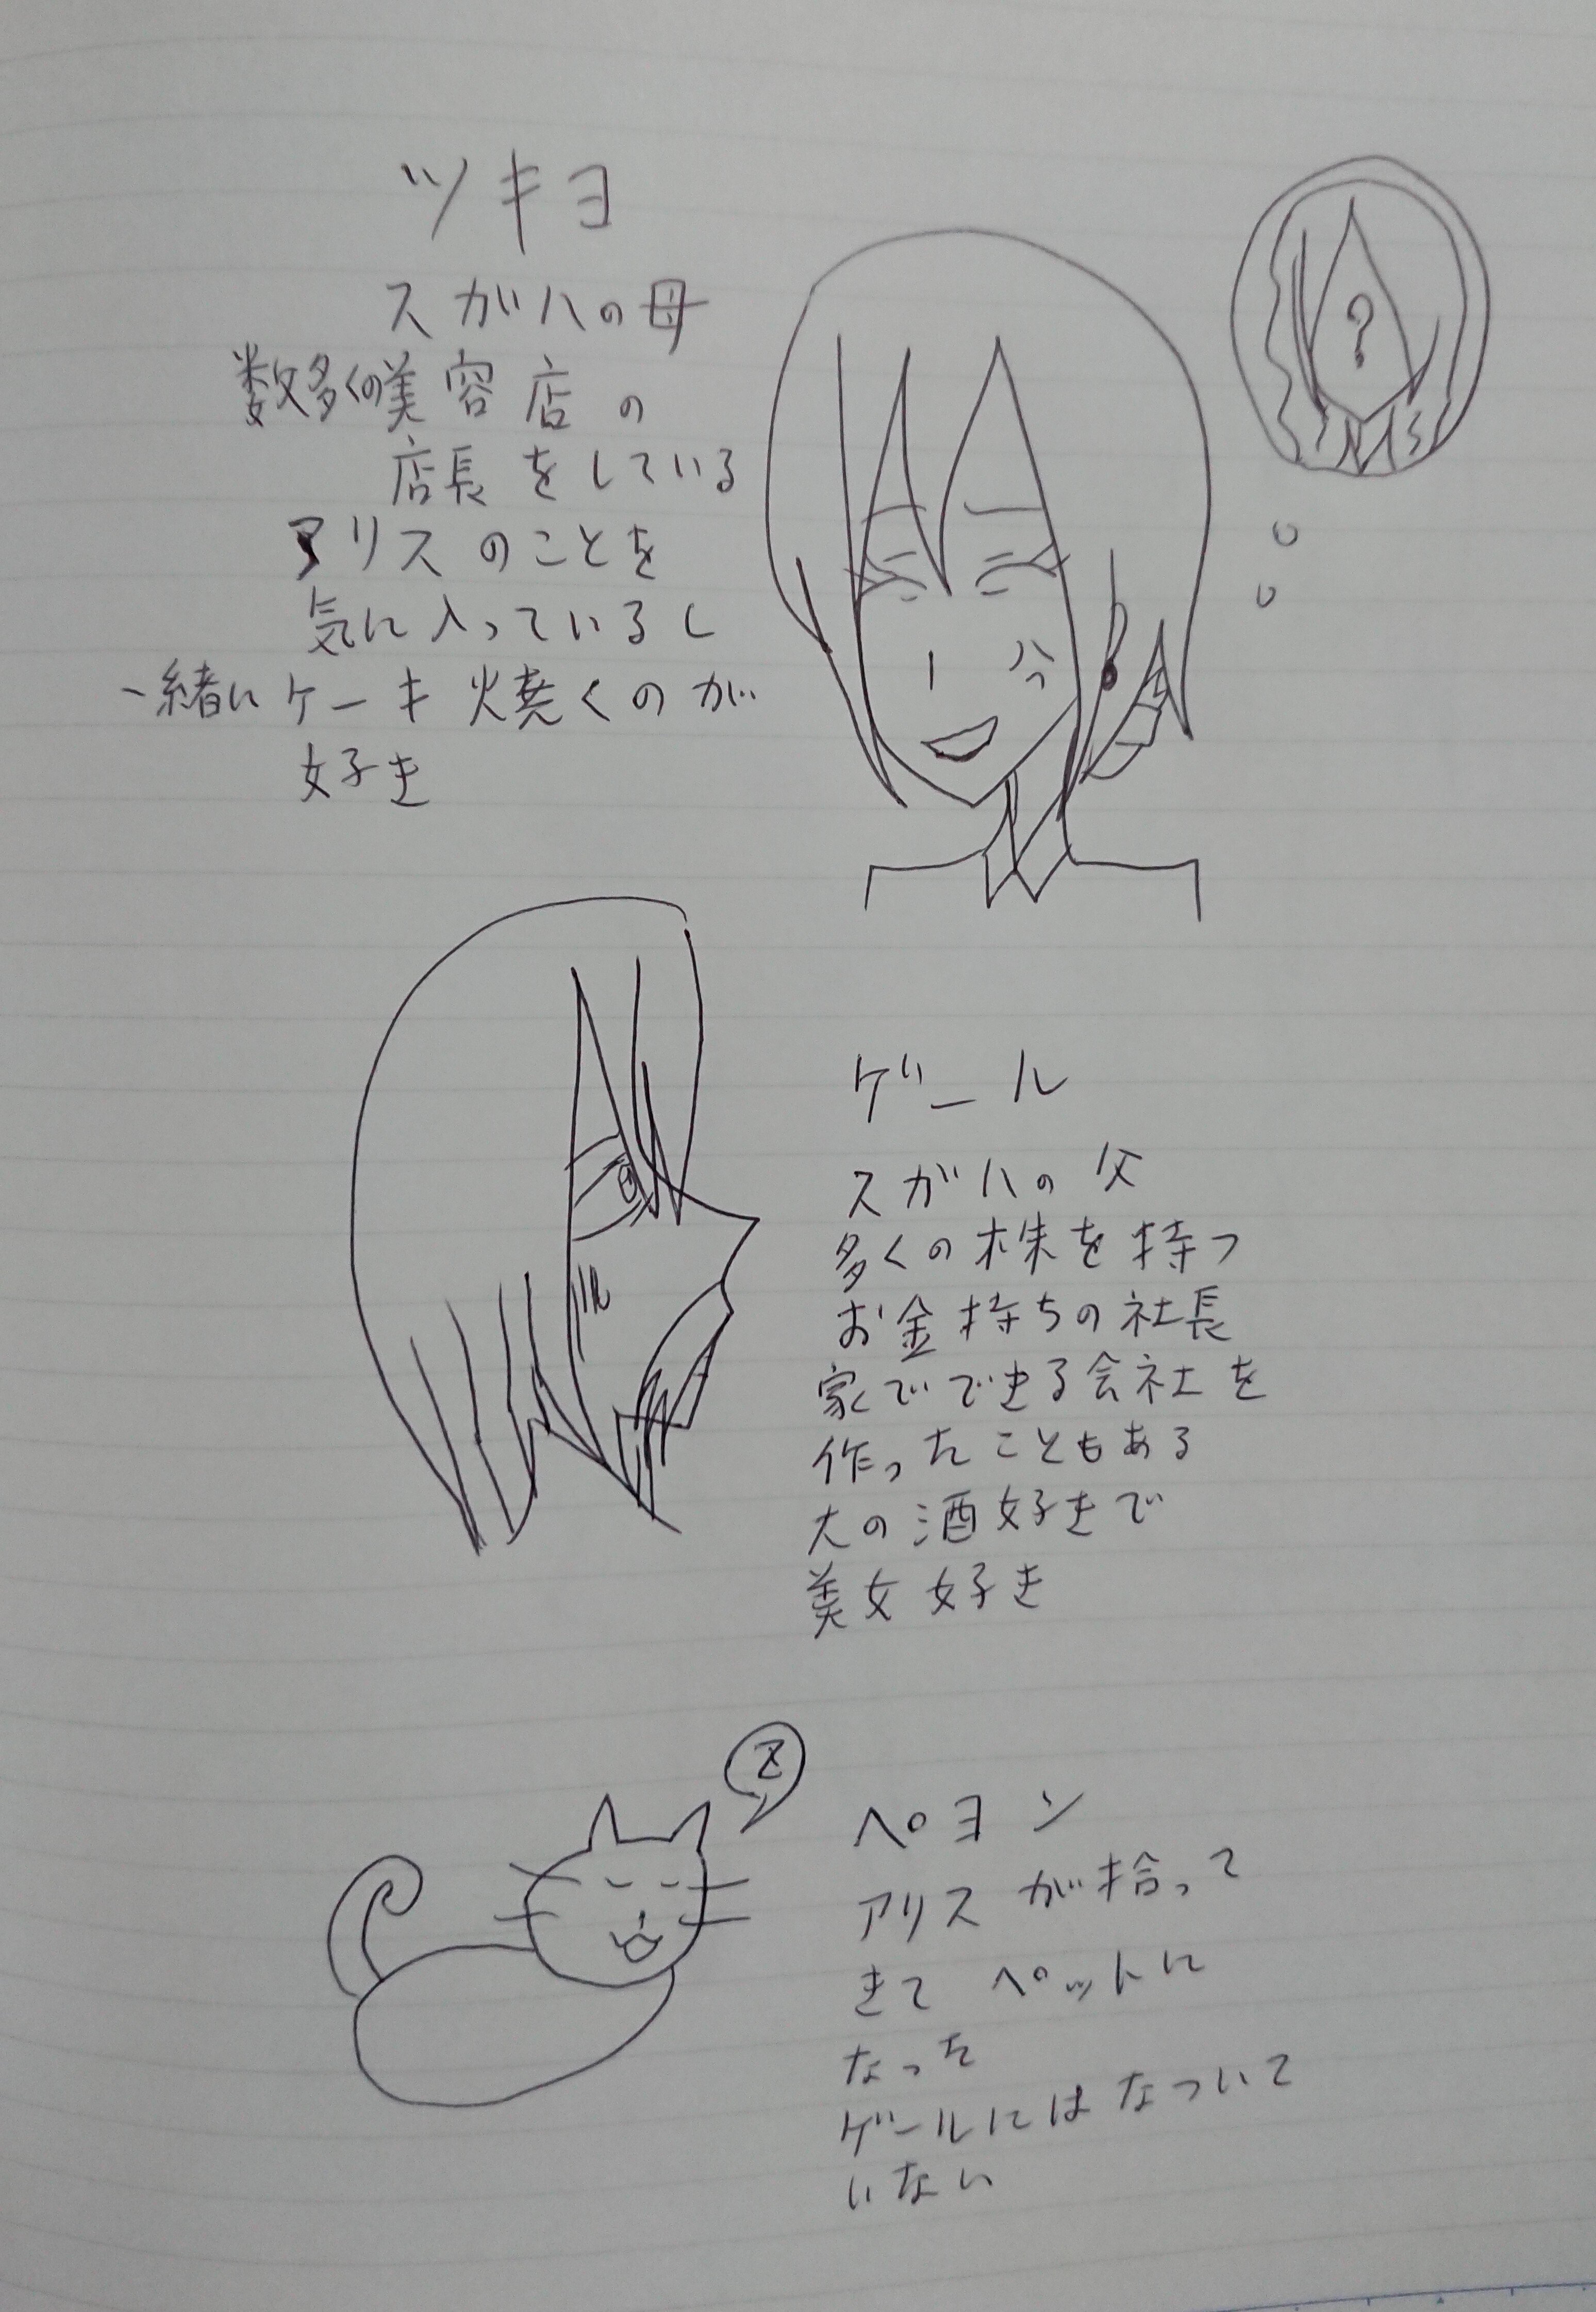 ツキヨ
スガハの母
数多くの美容店の
店長をしている
アリスのことを
気に入っているし
一緒にケーキ焼くのが
好き
?
ゲール
スガハの父
多くの株を持つ
お金持ちの社長
家でできる会社を
作ったこともある
大の酒好きで
美女好き
Z
ペヨン
アリスが拾って
きてペットに
なった
ゲールにはなついて
いない